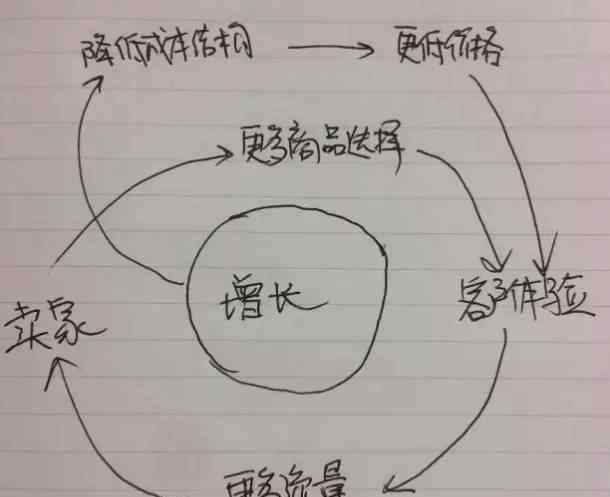 降低成本结构 更低价格
更多商品选择
增长
客户体验
卖家
更多流量